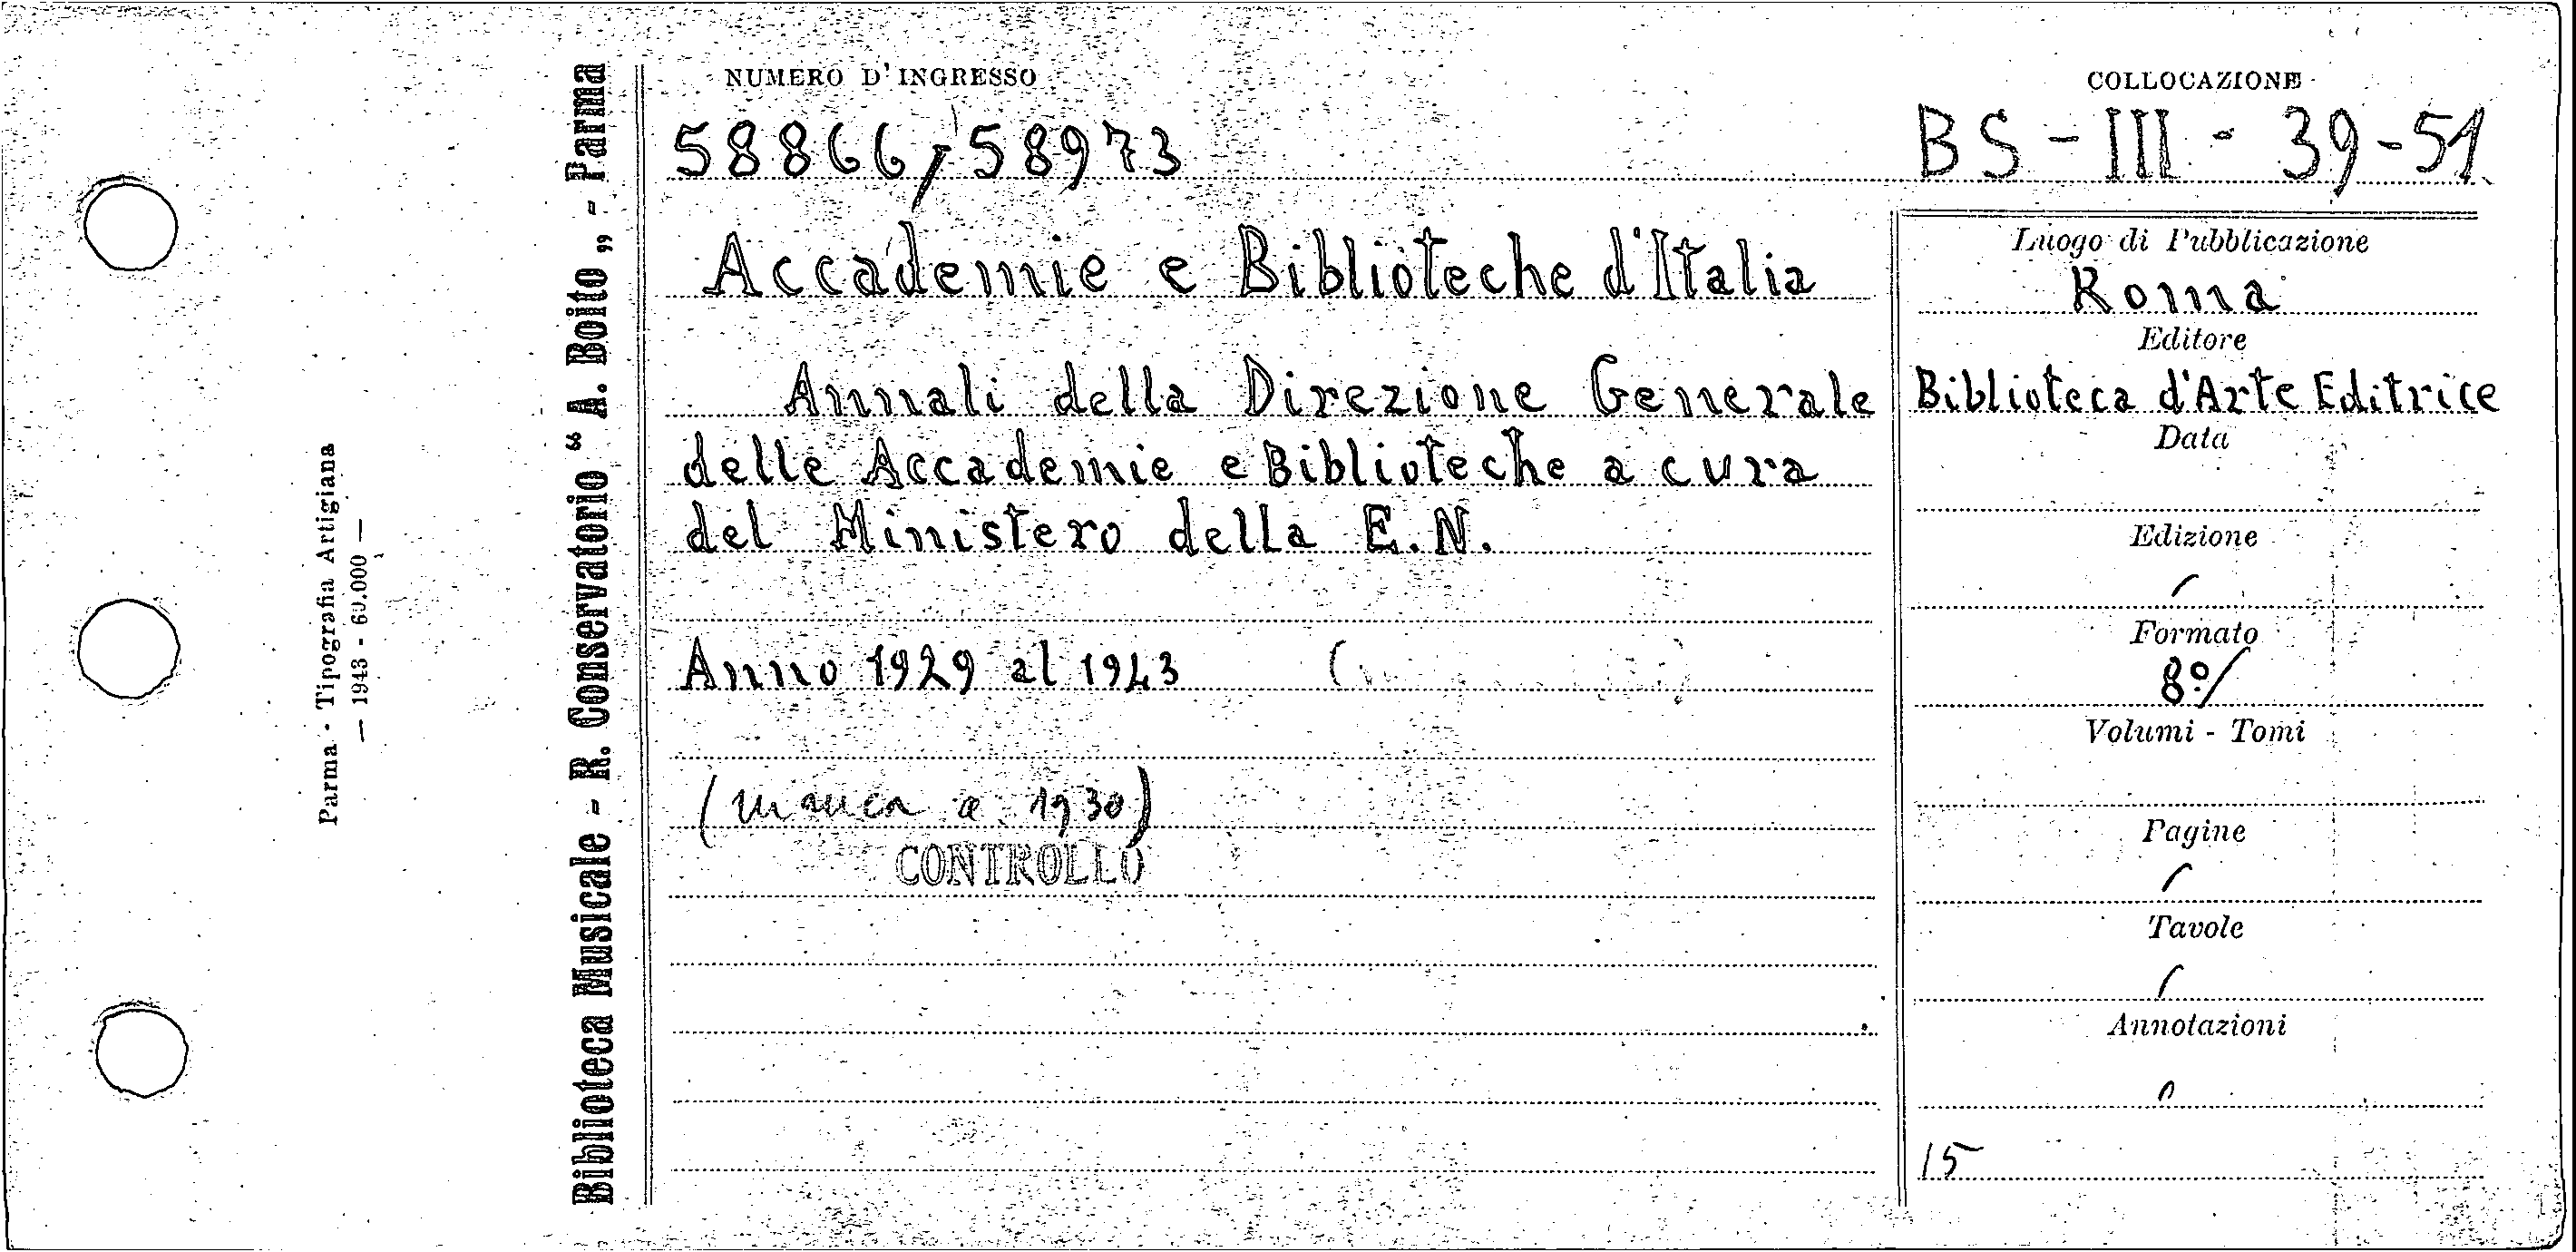 Parma - Tipografia Artigiana
— 1943 - 60.000 —
Biblioteca Musicale - R. Conservatorio “ A. Boito „ - Parma
NUMERO D'INGRESSO
58866,58973
COLLOCAZIONE
BS - III - 39-51
Accademie e Biblioteche d'Italia
Annali della Direzione Generale
delle Accademie e Biblioteche a cura
del Ministero della E.N.
Anno 1929 al 1943 (
(manca a. 1930)
CONTROLLO
Luogo di Pubblicazione
Roma
Editore
Biblioteca d'Arte Editrice
Data
Edizione
Formato
8º/
Volumi - Tomi
Pagine
Tavole
Annotazioni
15